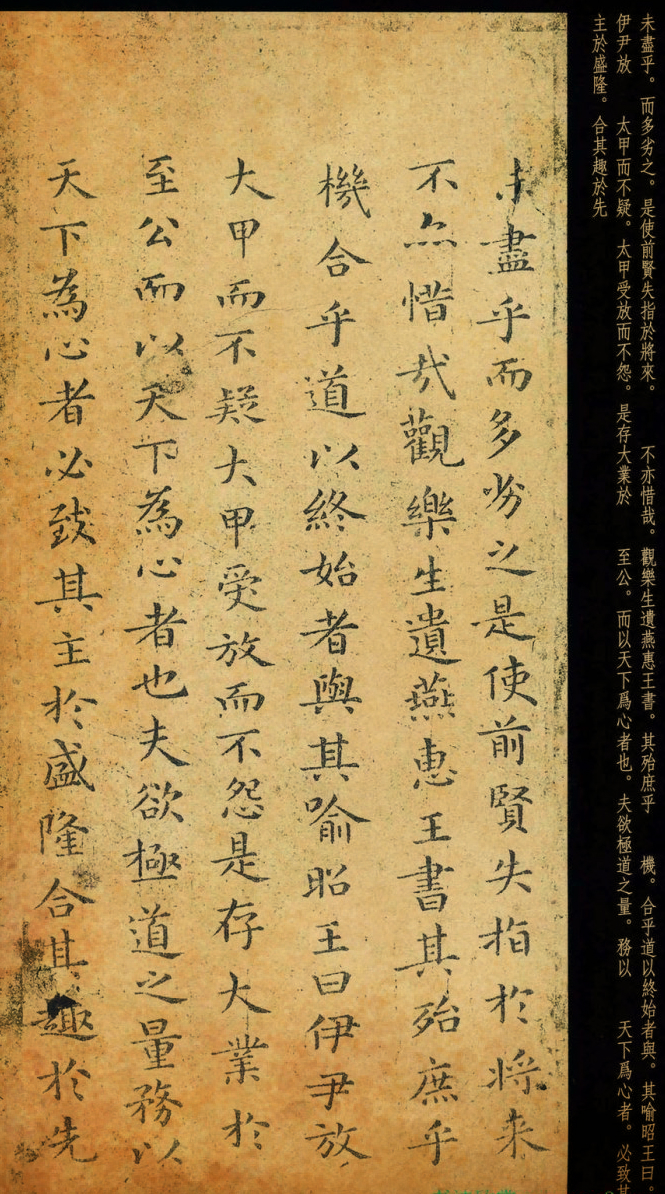 未盡乎。而多劣之。是使前賢失指於將來。 不亦惜哉。觀樂生遺燕惠王書。其殆庶乎 機。合乎道以終始者與。其喻昭王曰。
伊尹放 太甲而不疑。太甲受放而不怨。是存大業於 至公。而以天下爲心者也。夫欲極道之量。務以 天下爲心者。必致其
主於盛隆。合其趣於先
未盡乎而多劣之是使前賢失指於将来
不亦惜哉觀樂生遺燕惠王書其殆庶乎
機合乎道以終始者與其喻昭王曰伊尹放
大甲而不疑大甲受放而不怨是存大業於
至公而以天下為心者也夫欲極道之量務以
天下為心者必致其主於盛隆合其趣於先